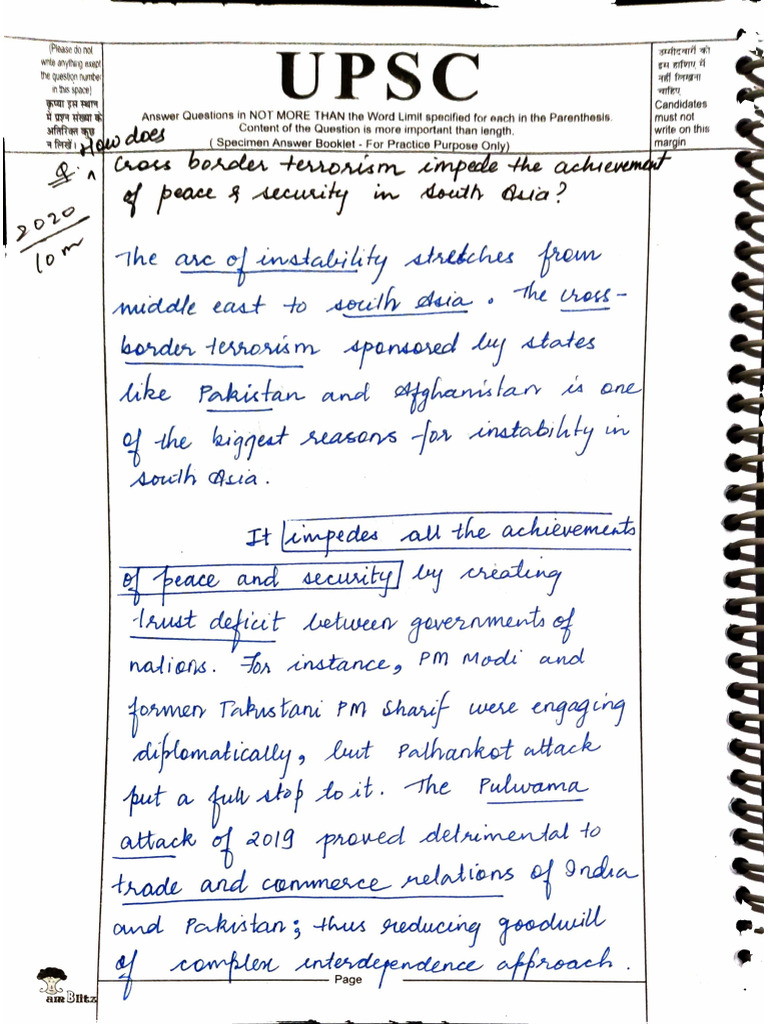 (Please do not
write anything exept
the question number
in this space)
कृप्या इस स्थान
में प्रश्न संख्या के
अतिरिक्त कुछ
न लिखें।
UPSC
Answer Questions in NOT MORE THAN the Word Limit specified for each in the Parenthesis.
Content of the Question is more important than length.
( Specimen Answer Booklet - For Practice Purpose Only)
उम्मीदवारों को
इस हाशिए में
नहीं लिखना
चाहिए
Candidates
must not
write on this
margin
How does
Q. ^ Cross border terrorism impede the achievement
of peace & security in South Asia?
2020
10m
The arc of instability stretches from
middle east to south Asia. The cross-
border terrorism sponsored by states
like Pakistan and Afghanistan is one
of the biggest reasons for instability in
south Asia.
It impedes all the achievements
of peace and security by creating
trust deficit between governments of
nations. For instance, PM Modi and
former Pakistani PM Sharif were engaging
diplomatically, but Pathankot attack
put a full stop to it. The Pulwama
attack of 2019 proved detrimental to
trade and commerce relations of India
and Pakistan; thus reducing goodwill
of complex interdependence approach.
Page
am Blitz